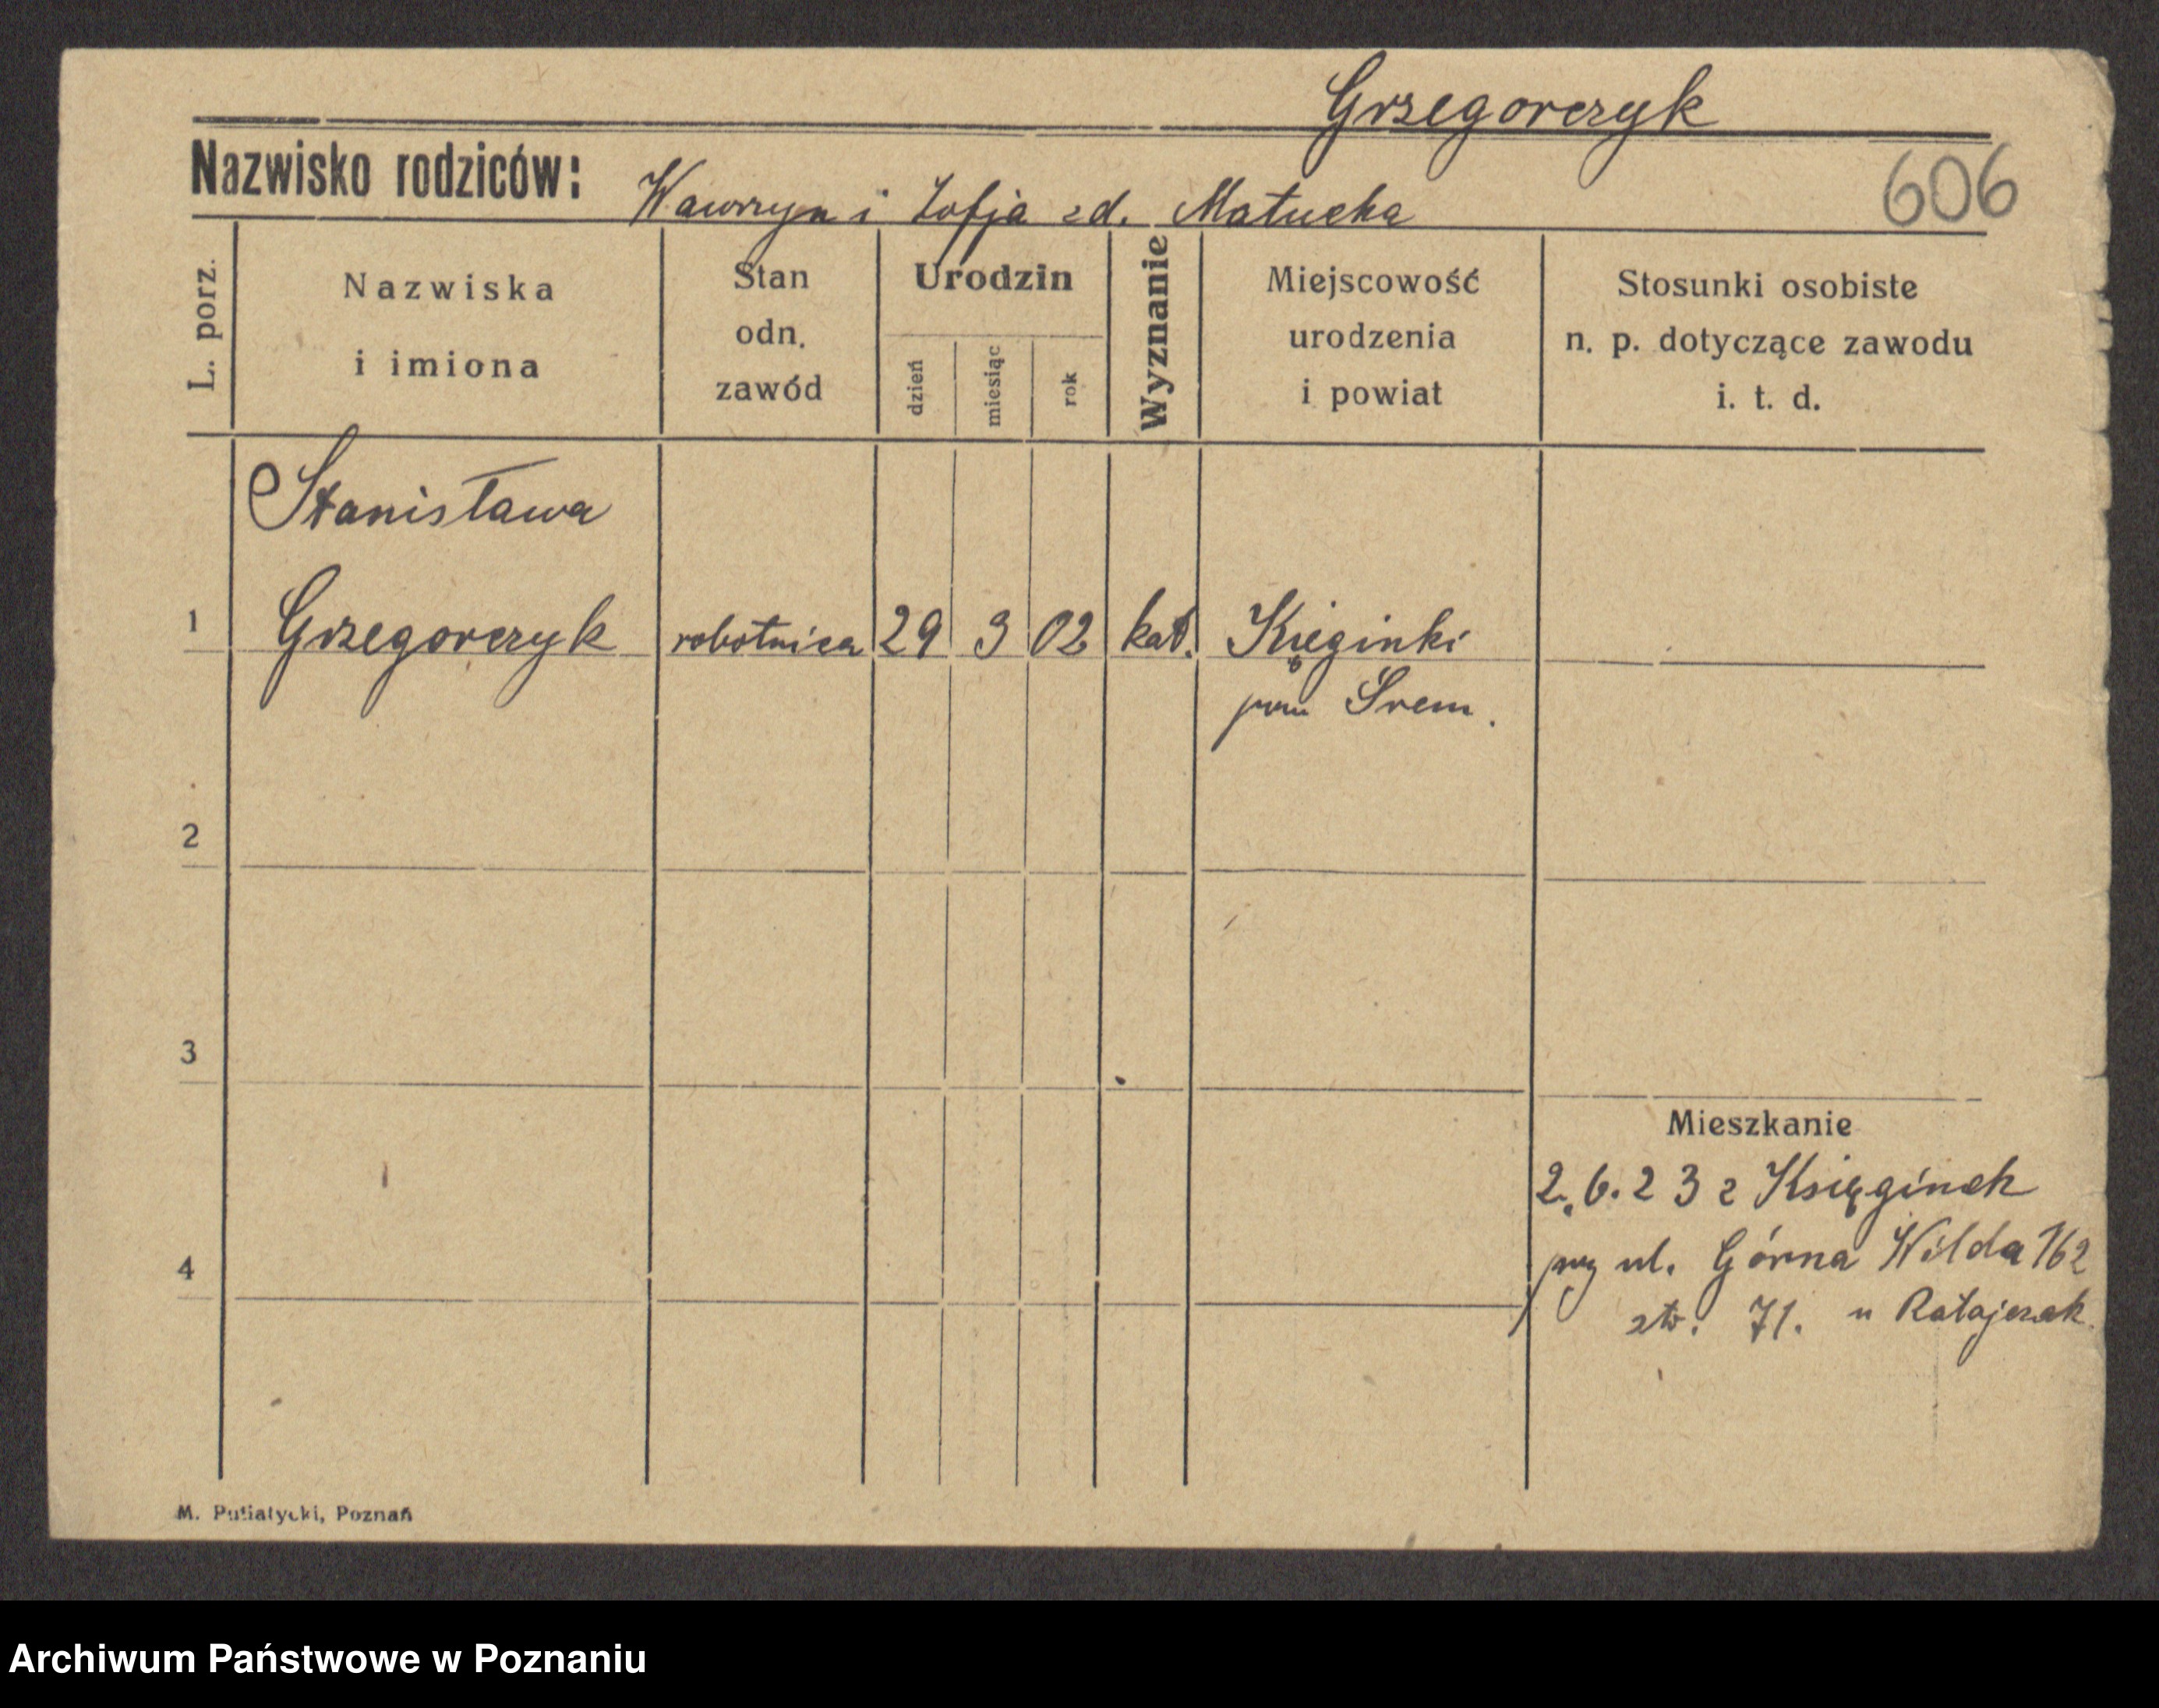 Grzegorczyk
Nazwisko rodziców: Wawrzyn i Zofja zd. Matucka
606
L. porz.
Nazwiska i imiona
Stan odn. zawód
Urodzin
dzień
miesiąc
rok
Wyznanie
Miejscowość urodzenia i powiat
Stosunki osobiste n. p. dotyczące zawodu i. t. d.
Stanisława
1 Grzegorczyk robotnica 29 3 02 kat.
pow Śrem.
2
3
Mieszkanie
2.6.23 z Księginek
przy ul. Górna Wilda 162
4
71. u Ratajczak.
M. Putiatycki, Poznań
Archiwum Państwowe w Poznaniu